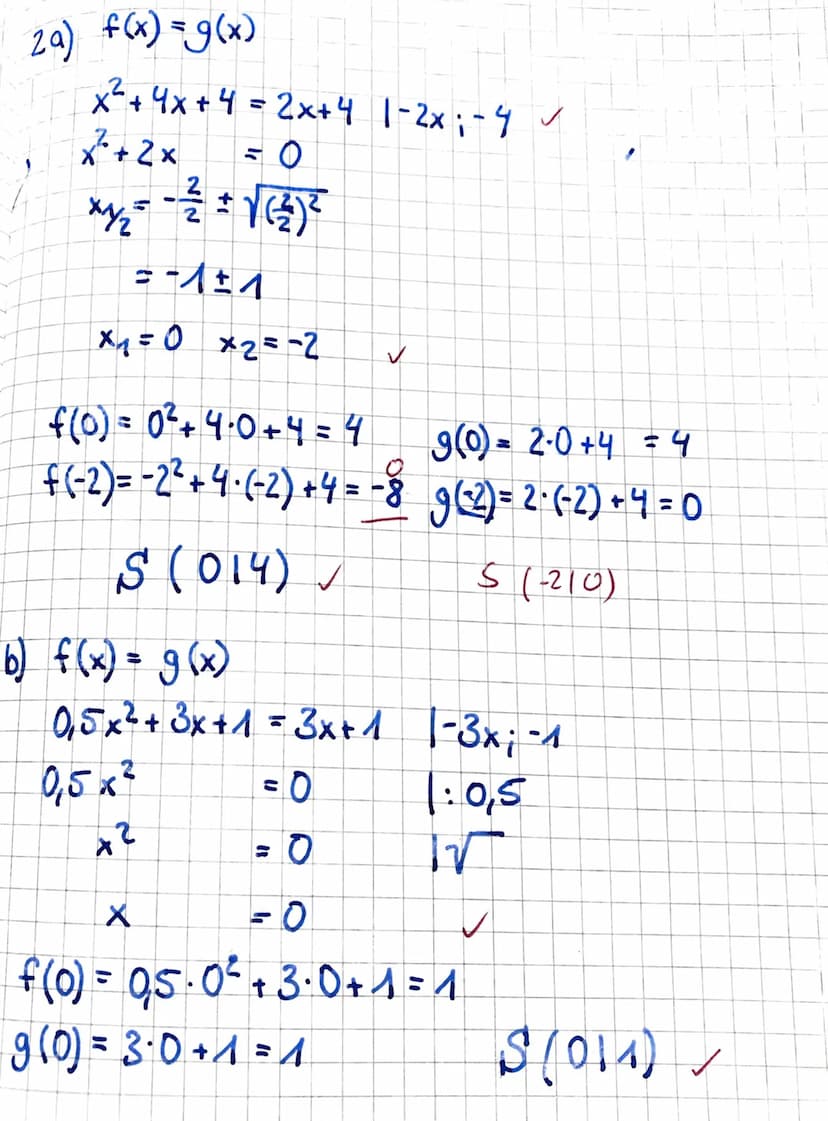 2a) f(x) = g(x)
x² + 4x + 4 = 2x + 4 |-2x ; -4 ✓
x² + 2x = 0
x1/2 = -2/2 ± √(2/2)²
= -1 ± 1
x₁ = 0 x₂ = -2 ✓
f(0) = 0² + 4·0 + 4 = 4 g(0) = 2·0 + 4 = 4
0
f(-2) = -2² + 4·(-2) + 4 = -8 g(-2) = 2·(-2) + 4 = 0
S (0|4) ✓ S (-2|0)
b) f(x) = g(x)
0,5x² + 3x + 1 = 3x + 1 |-3x ; -1
0,5x² = 0 |: 0,5
x² = 0 |√
x = 0 ✓
f(0) = 0,5·0² + 3·0 + 1 = 1
g(0) = 3·0 + 1 = 1 S (0|1) ✓